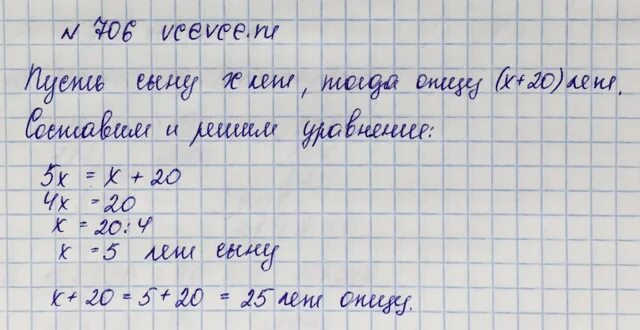 № 706 vcevce.ru
Пусть сыну x лет, тогда отцу (x+20) лет.
Составим и решим уравнение:
5x = x + 20
4x = 20
x = 20:4
x = 5 лет сыну
x + 20 = 5 + 20 = 25 лет отцу.